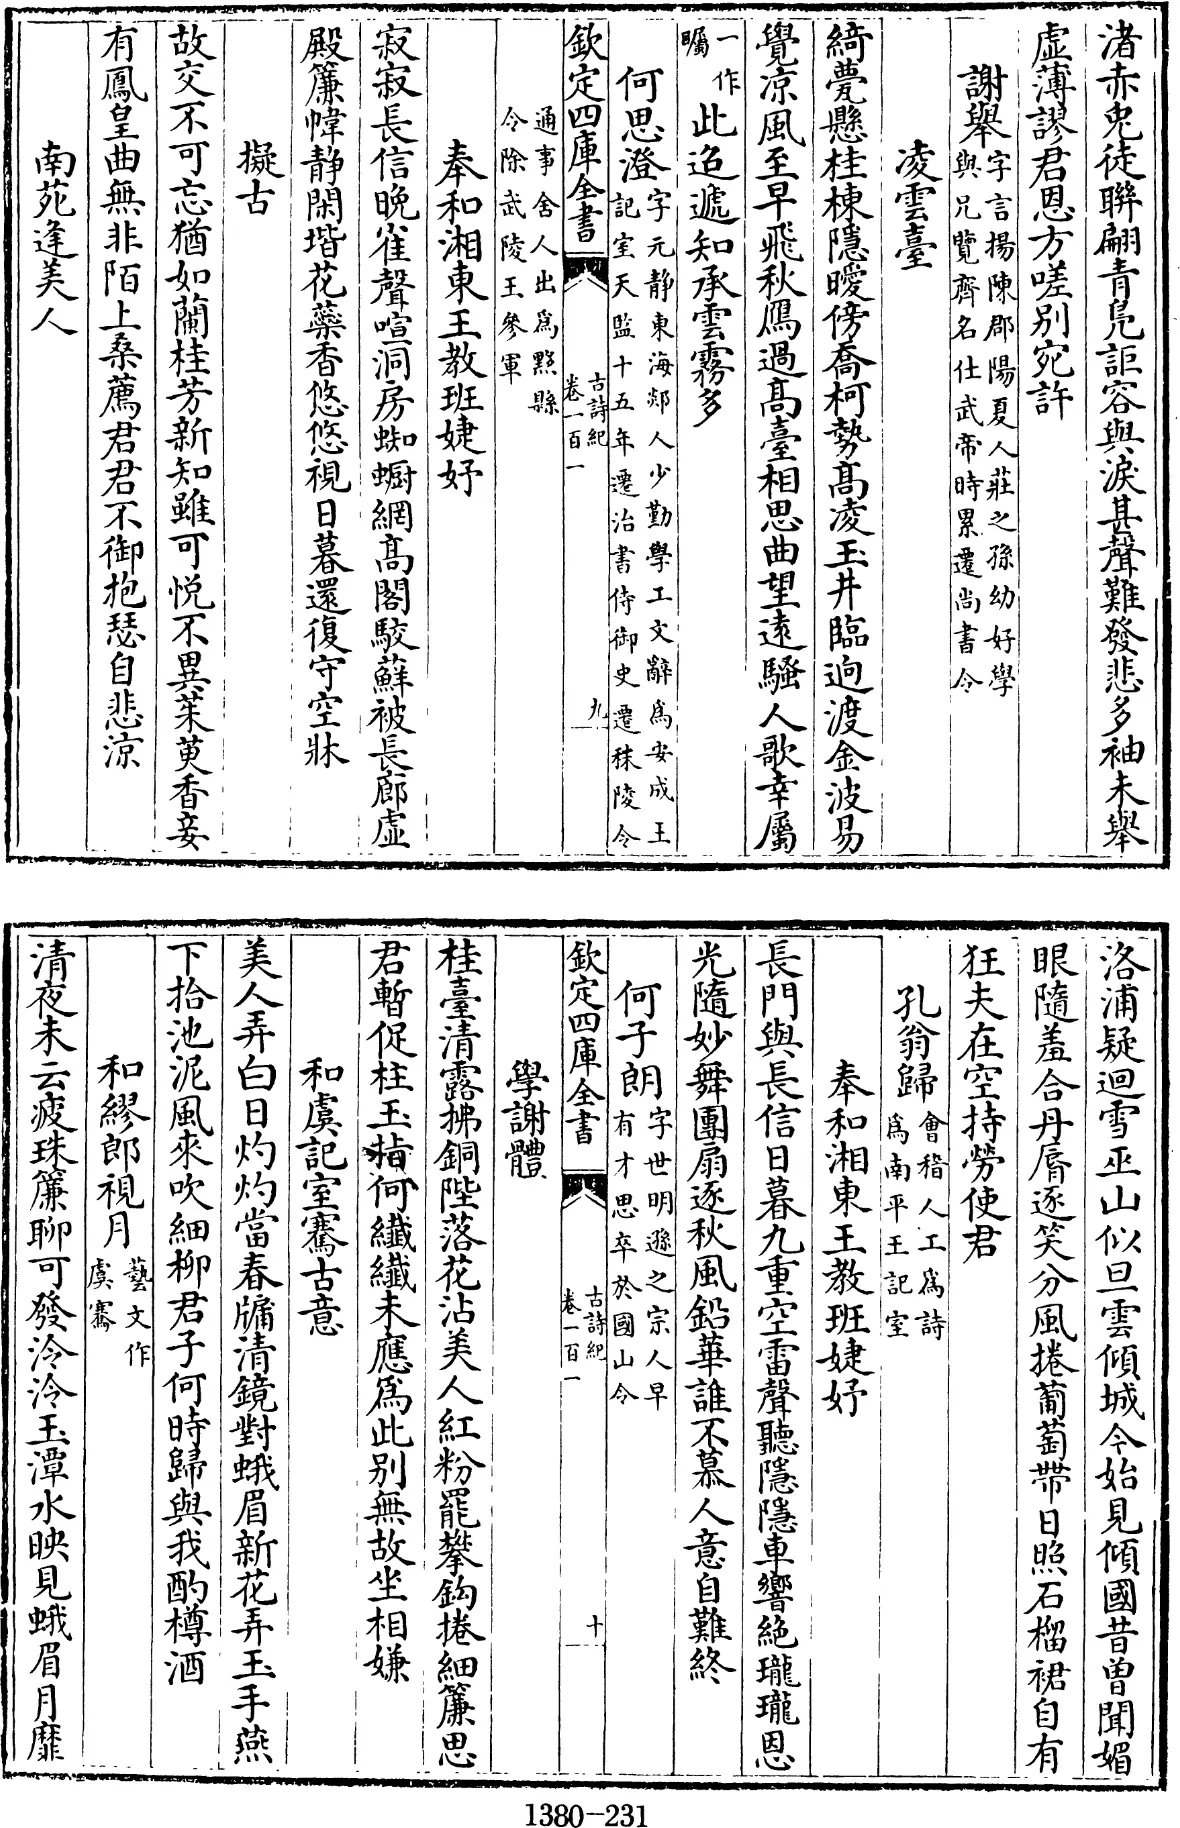 渚赤兎徒聯翩青鳬詎容與淚甚聲難發悲多袖未舉
虛薄謬君恩方嗟别宛許
謝舉字言揚陳郡陽夏人莊之孫幼好學
與兄覽齊名仕武帝時累遷尚書令
凌雲臺
綺甍懸桂棟隱曖傍喬柯勢髙凌玉井臨逈渡金波易
覺凉風至早飛秋鴈過髙臺相思曲望遠騷人歌幸屬
一作
矚此迢遞知承雲霧多
何思澄字元静東海郯人少勤學工文辭為安成王
記室天監十五年遷治書侍御史遷秣陵令
欽定四庫全書
古詩紀
卷一百一
九
通事舍人出為黟縣
令除武陵王參軍
奉和湘東王教班婕妤
寂寂長信晩雀聲喧洞房蜘蟵網髙閣駮蘚被長廊虛
殿簾幃静閑堦花蘂香悠悠視日暮還復守空牀
擬古
故交不可忘猶如蘭桂芳新知雖可悦不異茱萸香妾
有鳳皇曲無非陌上桑薦君君不御抱瑟自悲凉
南苑逢美人
洛浦疑迴雪巫山似旦雲傾城今始見傾國昔曾聞媚
眼隨羞合丹唇逐笑分風捲葡萄帶日照石榴裙自有
狂夫在空持勞使君
孔翁歸會稽人工為詩
為南平王記室
奉和湘東王教班婕妤
長門與長信日暮九重空雷聲聽隱隱車響絶瓏瓏恩
光隨妙舞團扇逐秋風鉛華誰不慕人意自難終
何子朗字世明遜之宗人早
有才思卒於國山令
欽定四庫全書
古詩紀
卷一百一
十
學謝體
桂臺清露拂銅陛落花沾美人紅粉罷攀鈎捲細簾思
君暫促柱玉指何纖纖未應為此别無故坐相嫌
和虞記室騫古意
美人弄白日灼灼當春牖清鏡對蛾眉新花弄玉手燕
下拾池泥風來吹細柳君子何時歸與我酌樽酒
和繆郎視月藝文作
虞騫
清夜未云疲珠簾聊可發泠泠玉潭水映見蛾眉月靡
1380-231